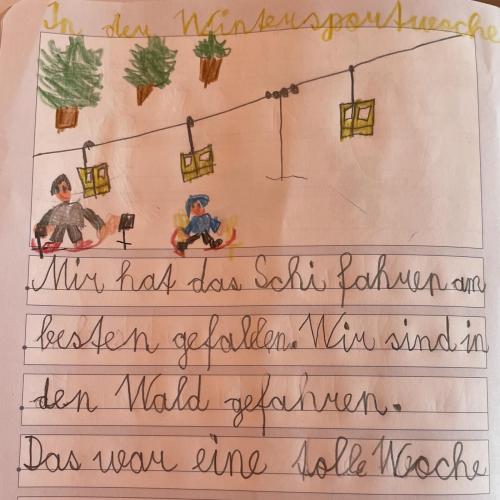 In der Wintersportwoche
Mir hat das Schi fahren am
besten gefallen. Wir sind in
den Wald gefahren.
Das war eine tolle Woche